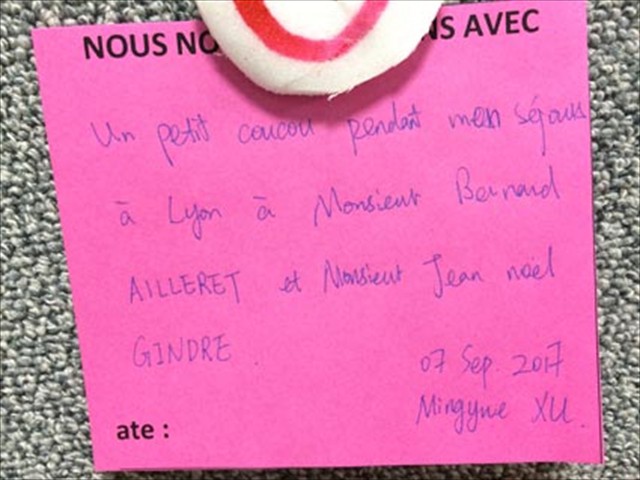 NOUS NO NS AVEC
Un petit coucou pendant mon séjours
à Lyon à Monsieur Bernard
AILLERET et Monsieur Jean noël
GINDRE.
07 Sep. 2017
Mingyue XU.
ate :